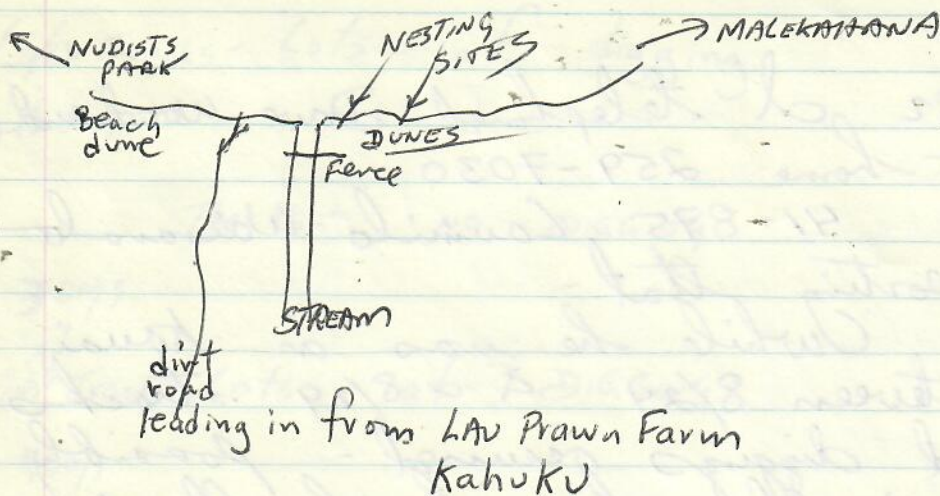 NUDISTS
PARK
NESTING
SITES
MALEKAHANA
Beach
dune
DUNES
Fence
STREAM
dirt
road
leading in from LAU Prawn Farm
KahuKU